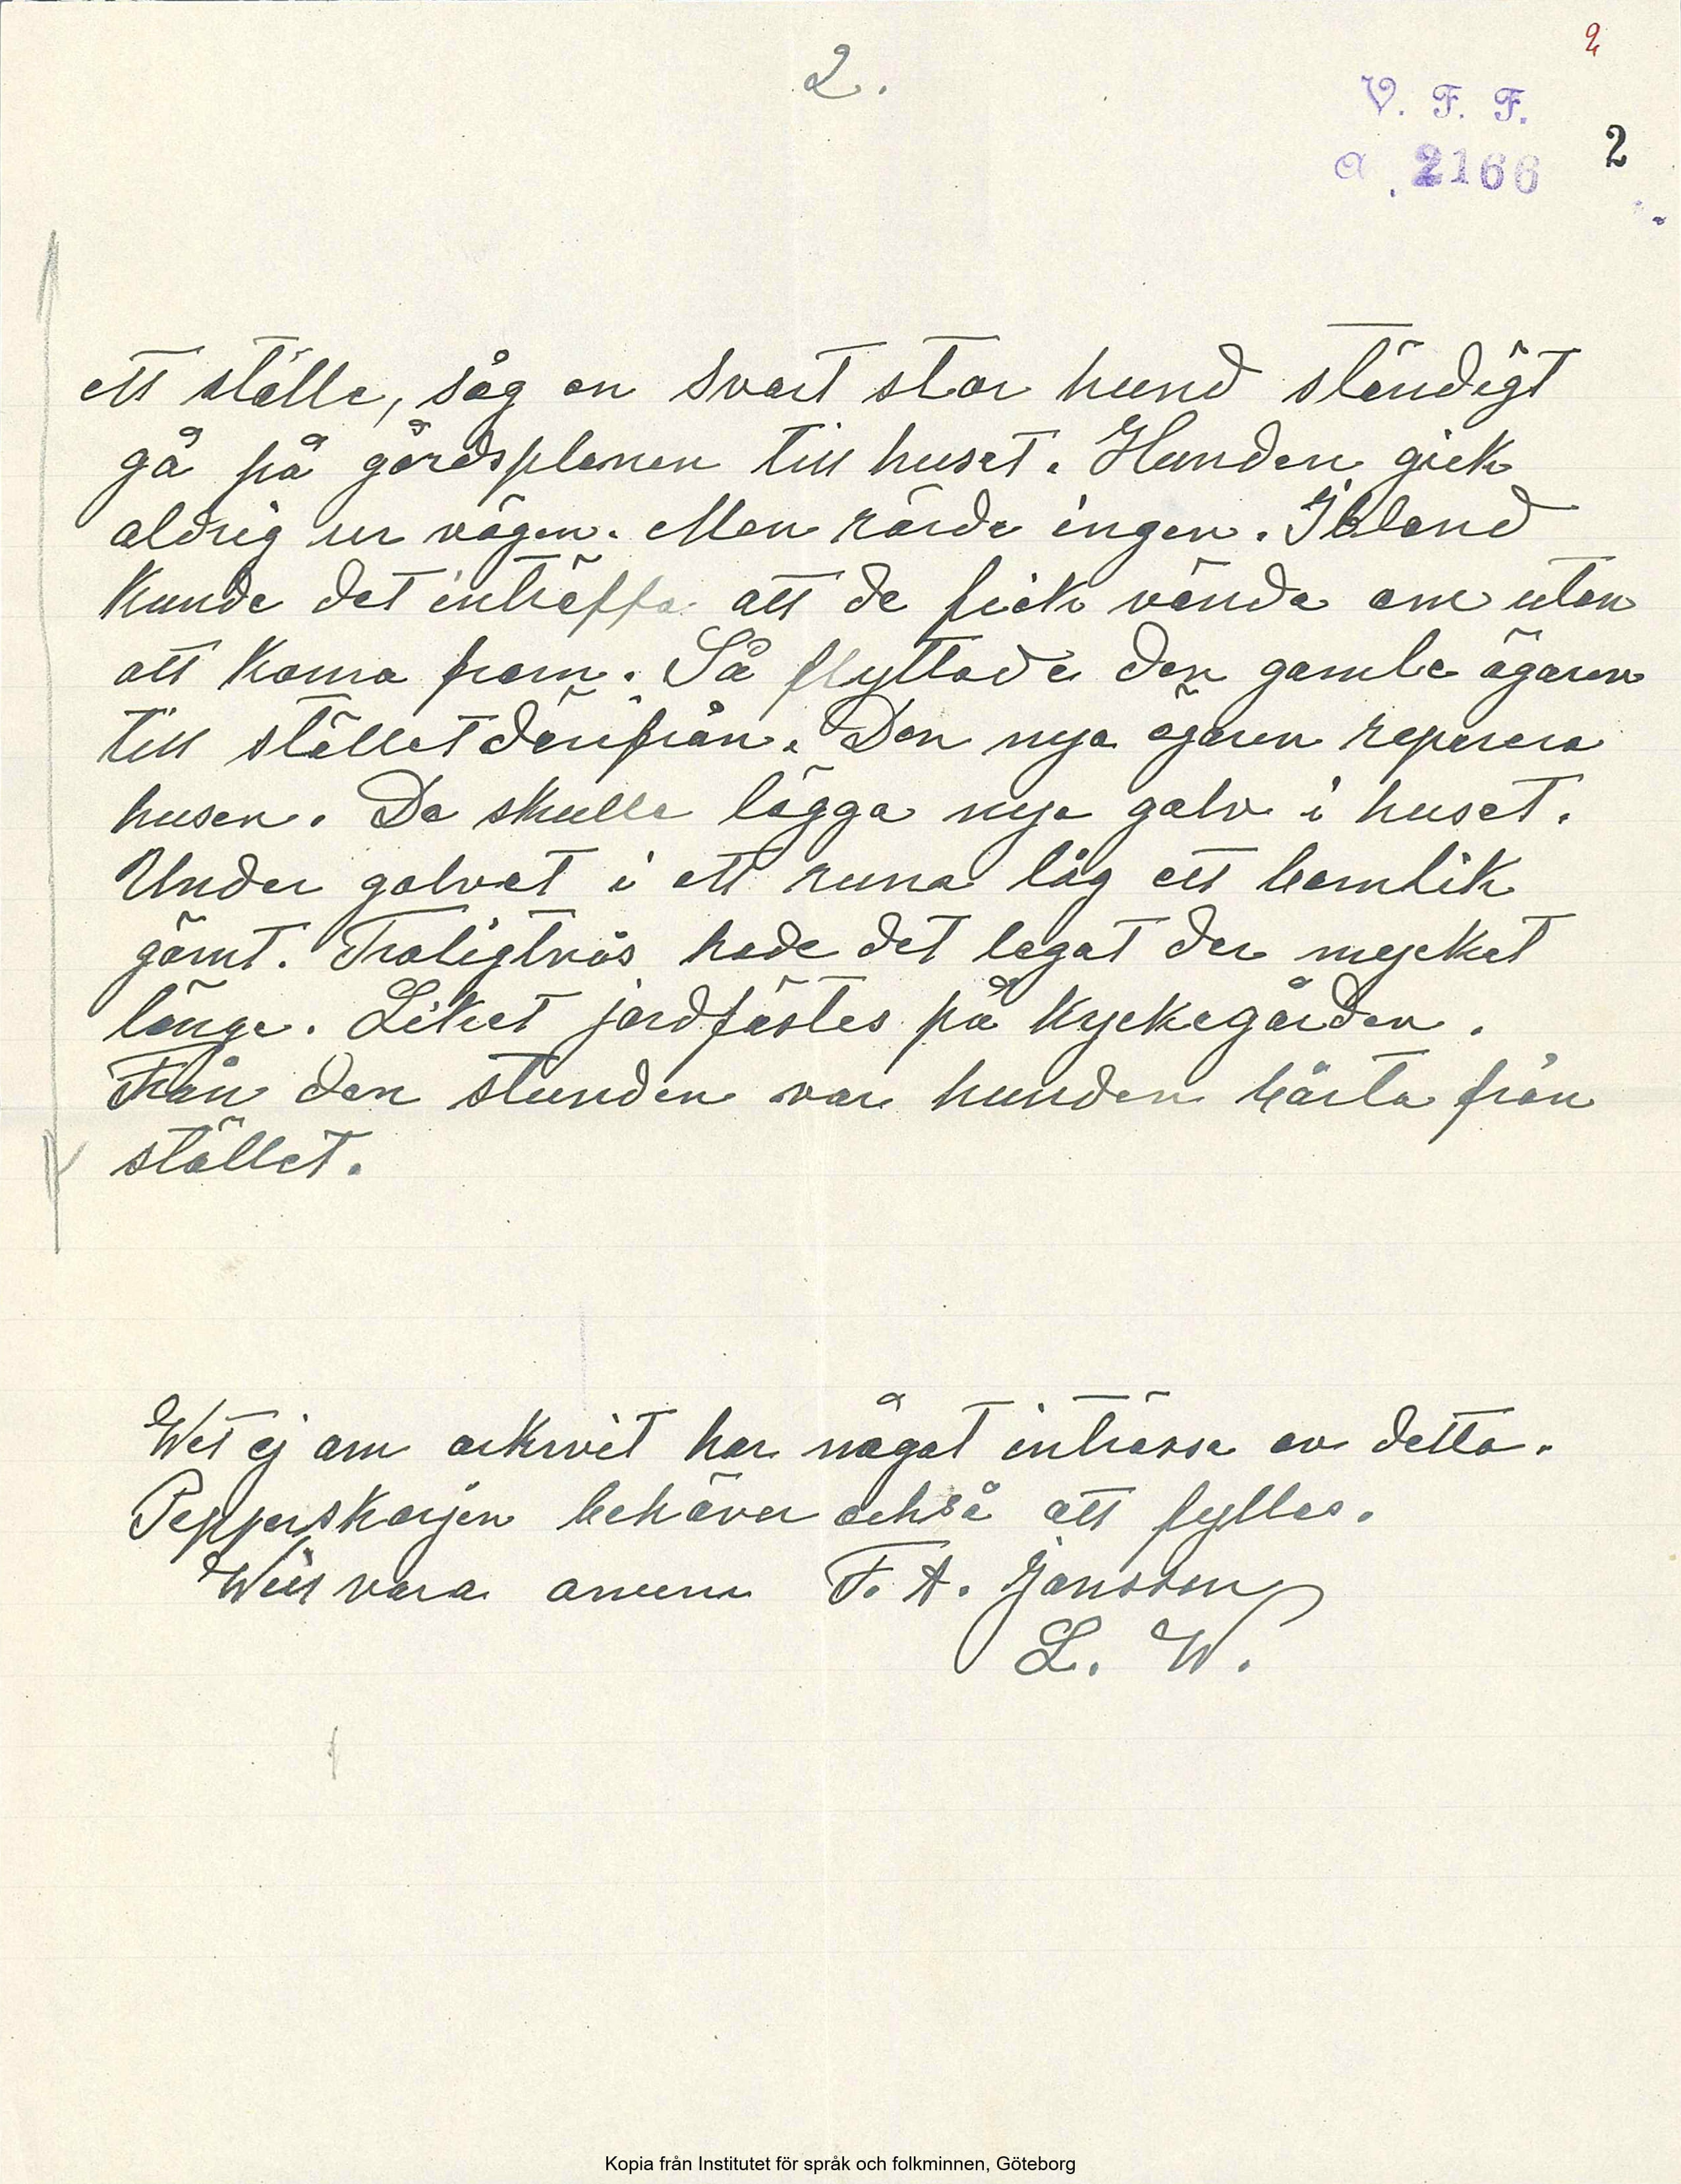 2
2.
V. F. F.
a. 2166
2
ett ställe, såg en svart stor hund ständigt
gå på gårdsplanen till huset. Hunden gick
aldrig ur vägen. Men rörde ingen. Ibland
kunde det inträffa att de fick vända om utan
att koma fram. Så flyttade den gamle ägaren
till stället därifrån. Den nya ägaren reparera
husen. De skulle lägga nya golv i huset.
Under golvet i ett rum låg ett barnlik
gömt. Troligtvis hade det legat der mycket
länge. Liket jordfästes på kyrkogården.
Från den stunden var hunden bårta från
stället.
Wet ej om arkivet har något intrásse av detta.
Pepparskorjen behöver också att fyllas.
Will vara anum F. A. Jansson
L. W.
Kopia från Institutet för språk och folkminnen, Göteborg